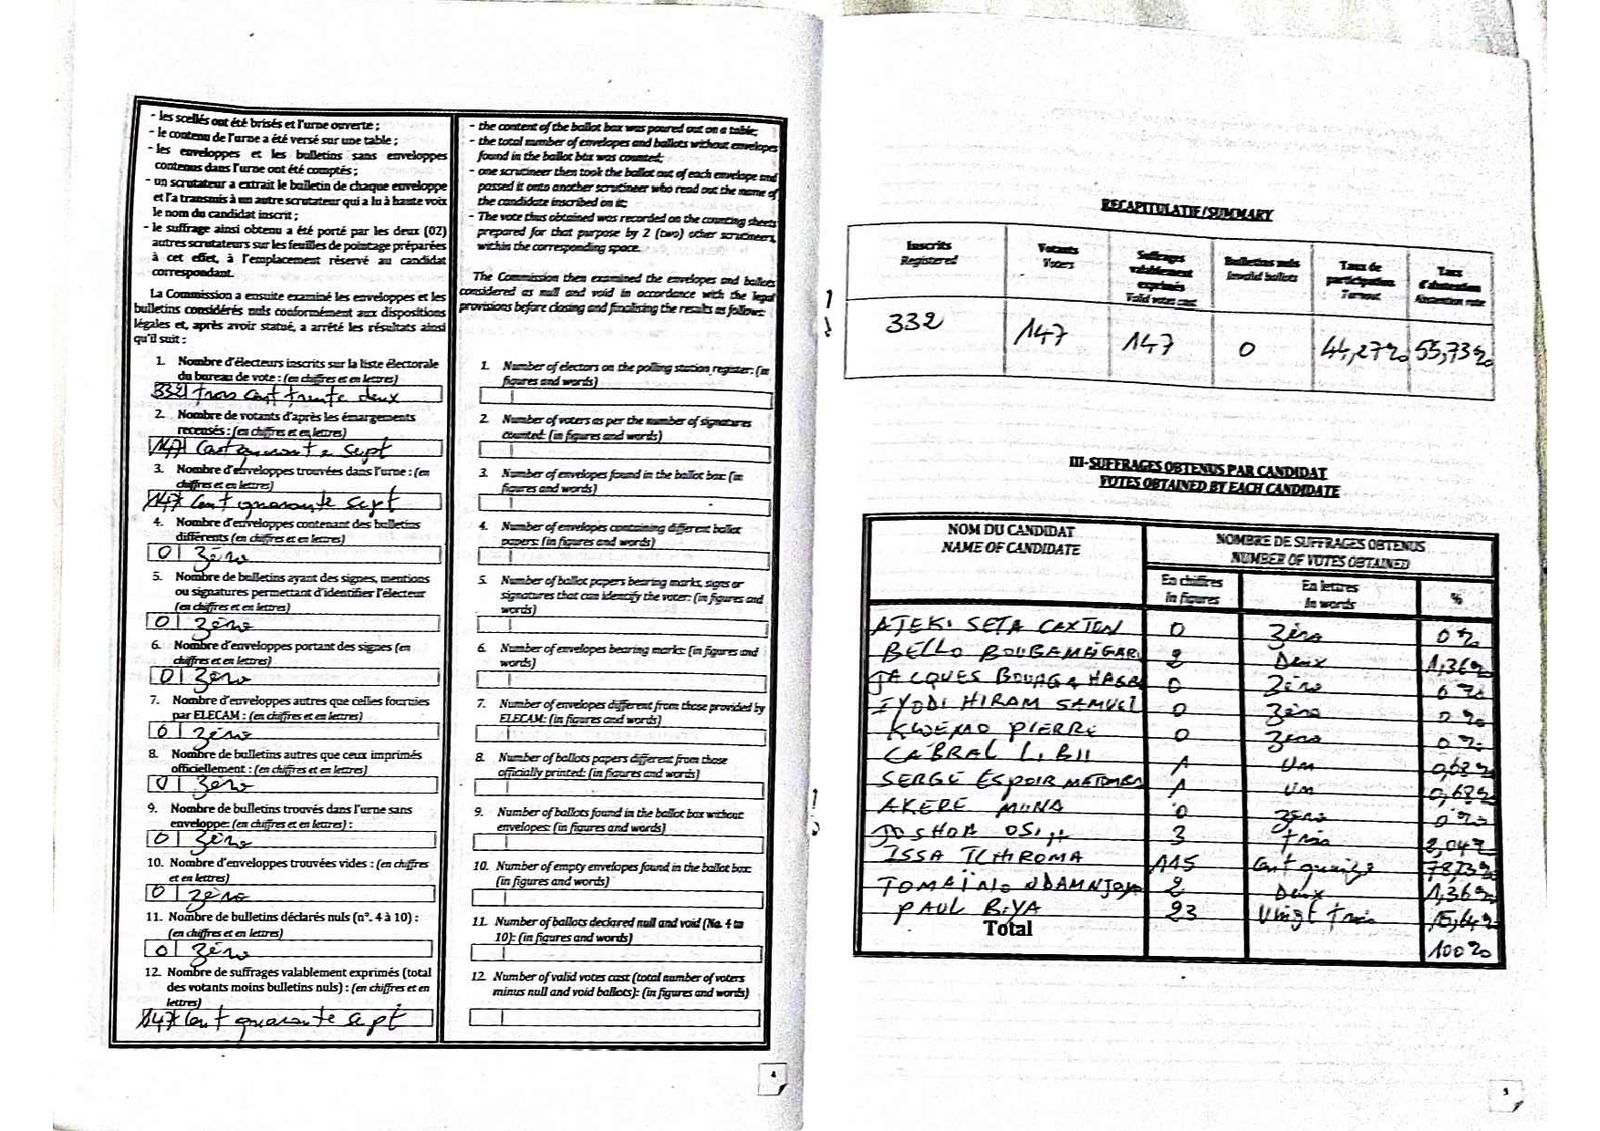 - les scellés ont été brisés et l'urne ouverte ;
- le contenu de l'urne a été versé sur une table ;
- les enveloppes et les bulletins sans enveloppes
contenus dans l'urne ont été comptés ;
- un scrutateur a extrait le bulletin de chaque enveloppe
et l'a transmis à un autre scrutateur qui a lu à haute voix
le nom du candidat inscrit ;
- le suffrage ainsi obtenu a été porté par les deux (02)
autres scrutateurs sur les feuilles de pointage préparées
à cet effet, à l'emplacement réservé au candidat
correspondant.
La Commission a ensuite examiné les enveloppes et les
bulletins considérés nuls conformément aux dispositions
légales et, après avoir statué, a arrêté les résultats ainsi
qu'il suit :
1. Nombre d'électeurs inscrits sur la liste électorale
du bureau de vote : (en chiffres et en lettres)
332 trois cent trente deux
2. Nombre de votants d'après les émargements
recensés : (en chiffres et en lettres)
147 Cent quarante sept
3. Nombre d'enveloppes trouvées dans l'urne : (en
chiffres et en lettres)
147 Cent quarante sept
4. Nombre d'enveloppes contenant des bulletins
différents (en chiffres et en lettres)
0 Zéro
5. Nombre de bulletins ayant des signes, mentions
ou signatures permettant d'identifier l'électeur
(en chiffres et en lettres)
0 Zéro
6. Nombre d'enveloppes portant des signes (en
chiffres et en lettres)
0 Zéro
7. Nombre d'enveloppes autres que celles fournies
par ELECAM : (en chiffres et en lettres)
0 Zéro
8. Nombre de bulletins autres que ceux imprimés
officiellement : (en chiffres et en lettres)
0 Zéro
9. Nombre de bulletins trouvés dans l'urne sans
enveloppe: (en chiffres et en lettres) :
0 Zéro
10. Nombre d'enveloppes trouvées vides : (en chiffres
et en lettres)
0 Zéro
11. Nombre de bulletins déclarés nuls (n°. 4 à 10) :
(en chiffres et en lettres)
0 Zéro
12. Nombre de suffrages valablement exprimés (total
des votants moins bulletins nuls) : (en chiffres et en
lettres)
147 Cent quarante sept
- the content of the ballot box was poured out on a table;
- the total number of envelopes and ballots without envelopes
found in the ballot box was counted;
- one scrutineer then took the ballot out of each envelope and
passed it onto another scrutineer who read out the name of
the candidate inscribed on it;
- The vote thus obtained was recorded on the counting sheets
prepared for that purpose by 2 (two) other scrutineers,
within the corresponding space.
The Commission then examined the envelopes and ballots
considered as null and void in accordance with the legal
provisions before closing and finalising the results as follows:
1. Number of electors on the polling station register: (in
figures and words)
2. Number of voters as per the number of signatures
counted: (in figures and words)
3. Number of envelopes found in the ballot box: (in
figures and words)
4. Number of envelopes containing different ballot
papers: (in figures and words)
5. Number of ballot papers bearing marks, signs or
signatures that can identify the voter: (in figures and
words)
6. Number of envelopes bearing marks: (in figures and
words)
7. Number of envelopes different from those provided by
ELECAM: (in figures and words)
8. Number of ballots papers different from those
officially printed: (in figures and words)
9. Number of ballots found in the ballot box without
envelopes: (in figures and words)
10. Number of empty envelopes found in the ballot box:
(in figures and words)
11. Number of ballots declared null and void (No. 4 to
10): (in figures and words)
12. Number of valid votes cast (total number of voters
minus null and void ballots): (in figures and words)
4
RECAPITULATIF/SUMMARY
Inscrits Registered | Votants Voters | Suffrages valablement exprimés Valid votes cast | Bulletins nuls Invalid ballots | Taux de participation Turnout | Taux d'abstention Abstention rate
332 147 147 0 44,27% 55,73%
III-SUFFRAGES OBTENUS PAR CANDIDAT
VOTES OBTAINED BY EACH CANDIDATE
NOM DU CANDIDAT
NAME OF CANDIDATE
NOMBRE DE SUFFRAGES OBTENUS
NUMBER OF VOTES OBTAINED
En chiffres In figures | En lettres In words | %
ATEKI SETA CAXTON 0 Zéro 0%
BELLO BOUBA MAIGARI 2 Deux 1,36%
JACQUES BOUGHA HAGBE 0 Zéro 0%
IYODI HIRAM SAMUEL 0 Zéro 0%
KWEMO PIERRE 0 Zéro 0%
CABRAL LIBII 1 Un 0,68%
SERGE ESPOIR MATOMBA 1 Un 0,68%
AKERE MUNA 0 Zéro 0%
JOSHUA OSIH 3 trois 2,04%
ISSA TCHIROMA 115 Cent quinze 78,23%
TOMAINO NDAMNJOYA 2 Deux 1,36%
PAUL BIYA 23 Vingt trois 15,64%
Total 100%
5